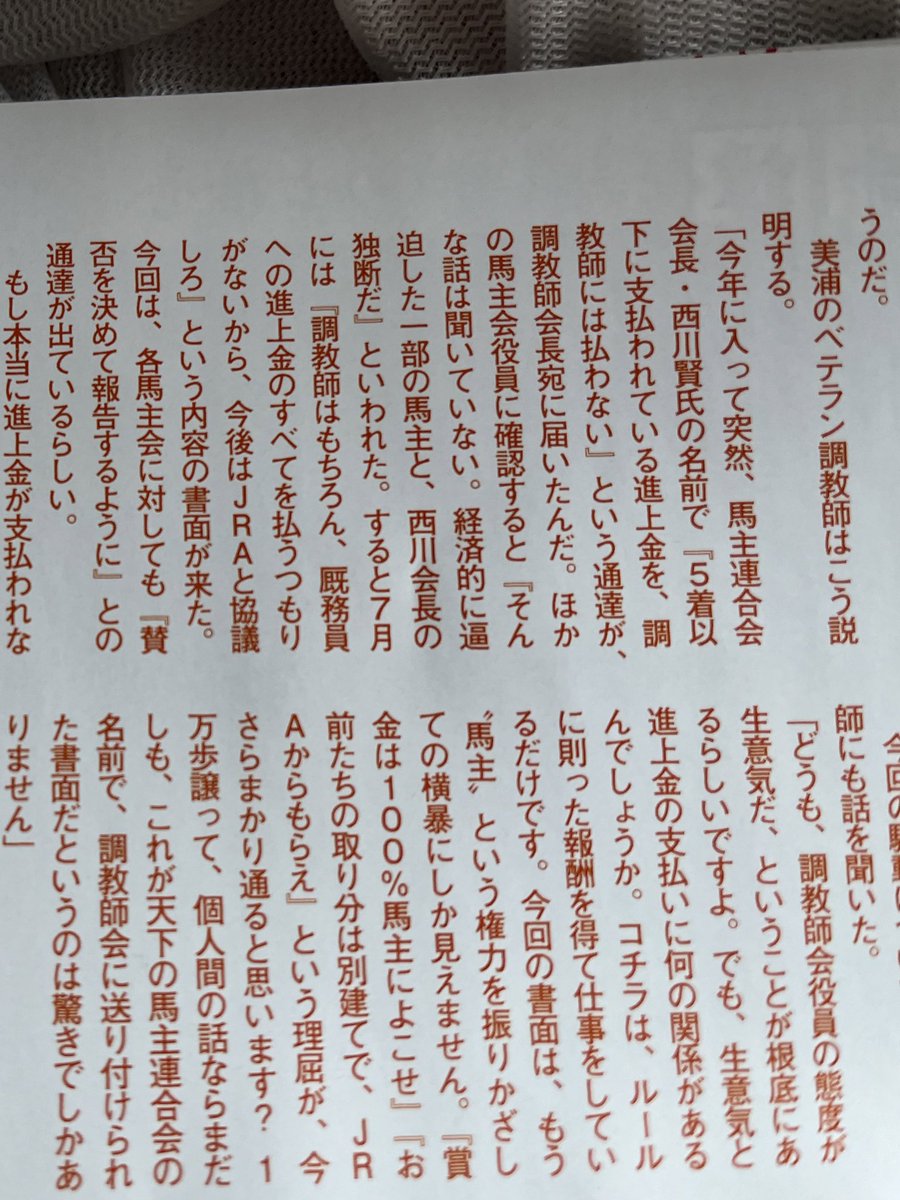 うのだ。
美浦のベテラン調教師はこう説
明する。
「今年に入って突然、馬主連合会
会長・西川賢氏の名前で『5着以
下に支払われている進上金を、調
教師には払わない』という通達が、
調教師会長宛に届いたんだ。ほか
の馬主会役員に確認すると『そん
な話は聞いていない。経済的に逼
迫した一部の馬主と、西川会長の
独断だ』といわれた。すると7月
には『調教師はもちろん、厩務員
への進上金のすべてを払うつもり
がないから、今後はJRAと協議
しろ』という内容の書面が来た。
今回は、各馬主会に対しても『賛
否を決めて報告するように』との
通達が出ているらしい。
もし本当に進上金が支払われな
今回の騒動につい
師にも話を聞いた。
「どうも、調教師会役員の態度が
生意気だ、ということが根底にあ
るらしいですよ。でも、生意気と
進上金の支払いに何の関係がある
んでしょうか。コチラは、ルール
に則った報酬を得て仕事をしてい
るだけです。今回の書面は、もう
〝馬主〟という権力を振りかざし
ての横暴にしか見えません。『賞
金は100%馬主によこせ』『お
前たちの取り分は別建てで、JR
Aからもらえ』という理屈が、今
さらまかり通ると思います? 1
万歩譲って、個人間の話ならまだ
しも、これが天下の馬主連合会の
名前で、調教師会に送り付けられ
た書面だというのは驚きでしかあ
りません」